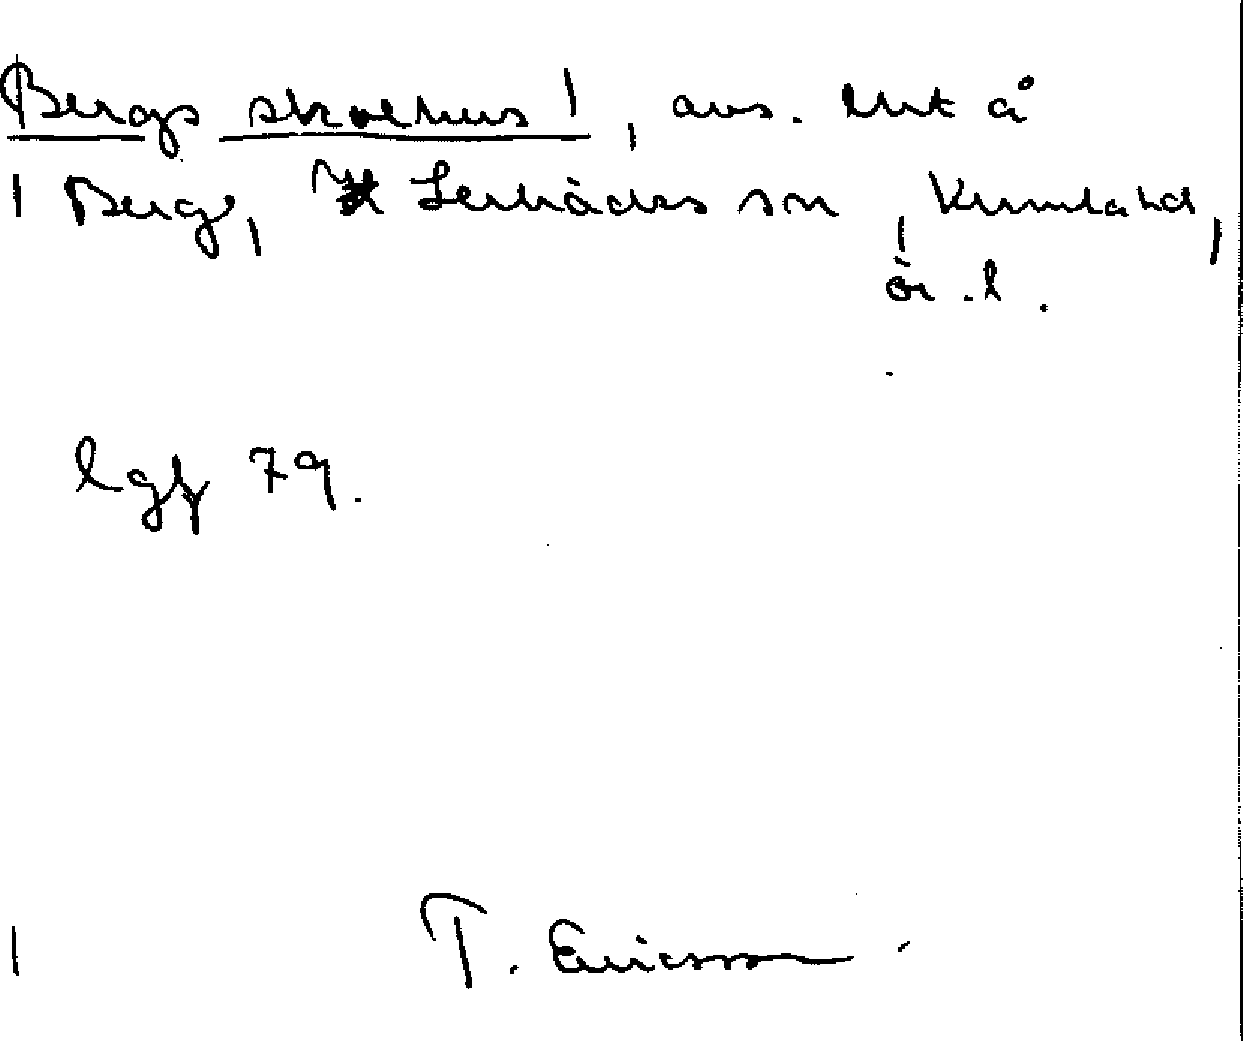 Bergs skolhus |, avs. urt å
| Berg, Lerbäcks sn, Kumla hd,
ör.l.
lgf 79.
| T. Ericsson